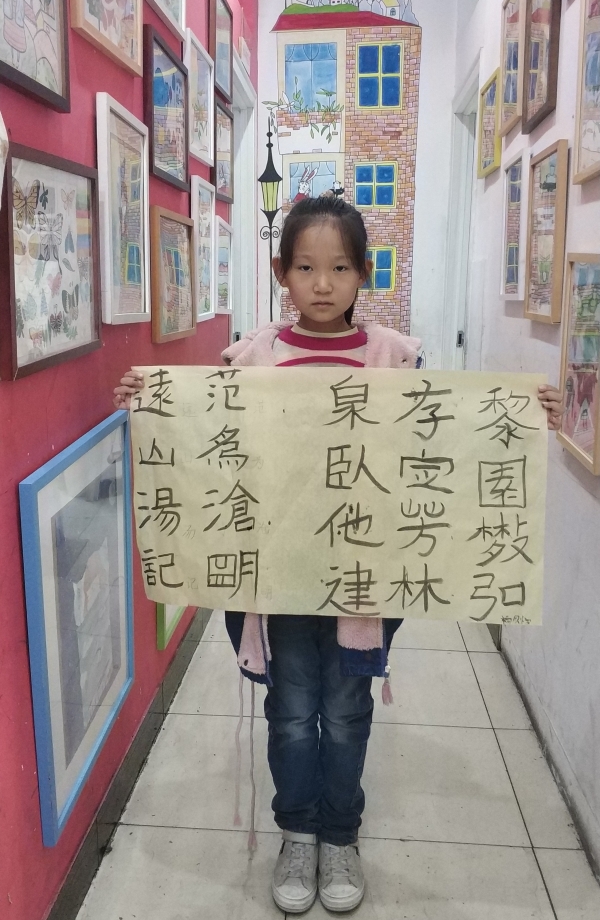 黎園弘
孝定芳林
泉臥他建
范為滄朙
遠山湯記